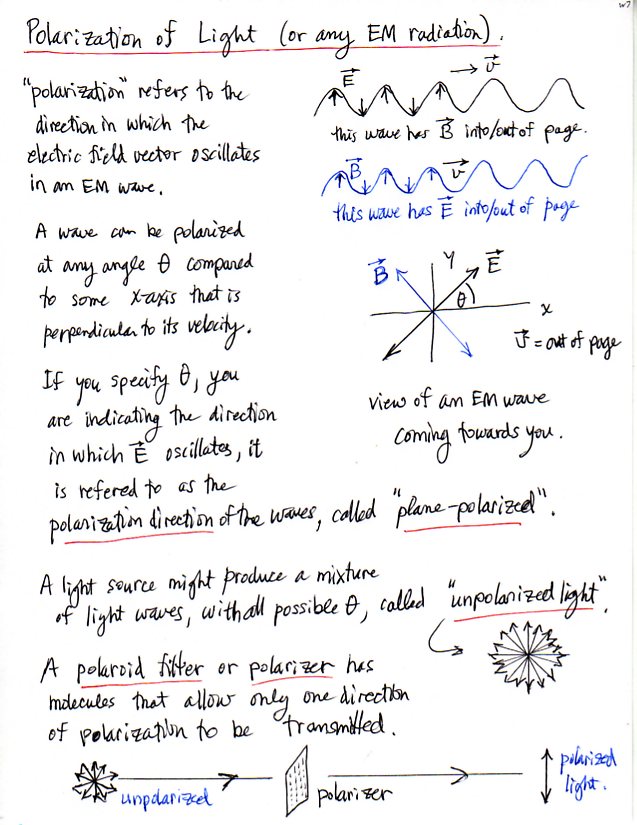 w7
Polarization of Light (or any EM radiation).
"polarization" refers to the
direction in which the
electric field vector oscillates
in an EM wave.
E v
this wave has B into/out of page.
B v
this wave has E into/out of page
A wave can be polarized
at any angle θ compared
to some x-axis that is
perpendicular to its velocity.
B y E
θ
x
v = out of page
view of an EM wave
coming towards you.
If you specify θ, you
are indicating the direction
in which E oscillates, it
is refered to as the
polarization direction of the waves, called "plane-polarized".
A light source might produce a mixture
of light waves, with all possible θ, called "unpolarized light".
A polaroid filter or polarizer has
molecules that allow only one direction
of polarization to be transmitted.
unpolarized
polarizer
polarized
light.